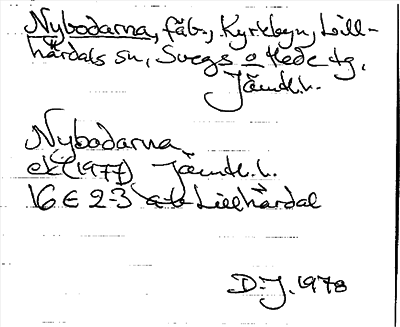 Nybodarna, fäb., Kyrkbyn, Lill-
härdals sn, Svegs o Hede tg,
Jämtl. l.
Nybodarna
ek (1977) Jämtl. l.
16 E 2-3 a-b Lillhärdal
D-J. 1978